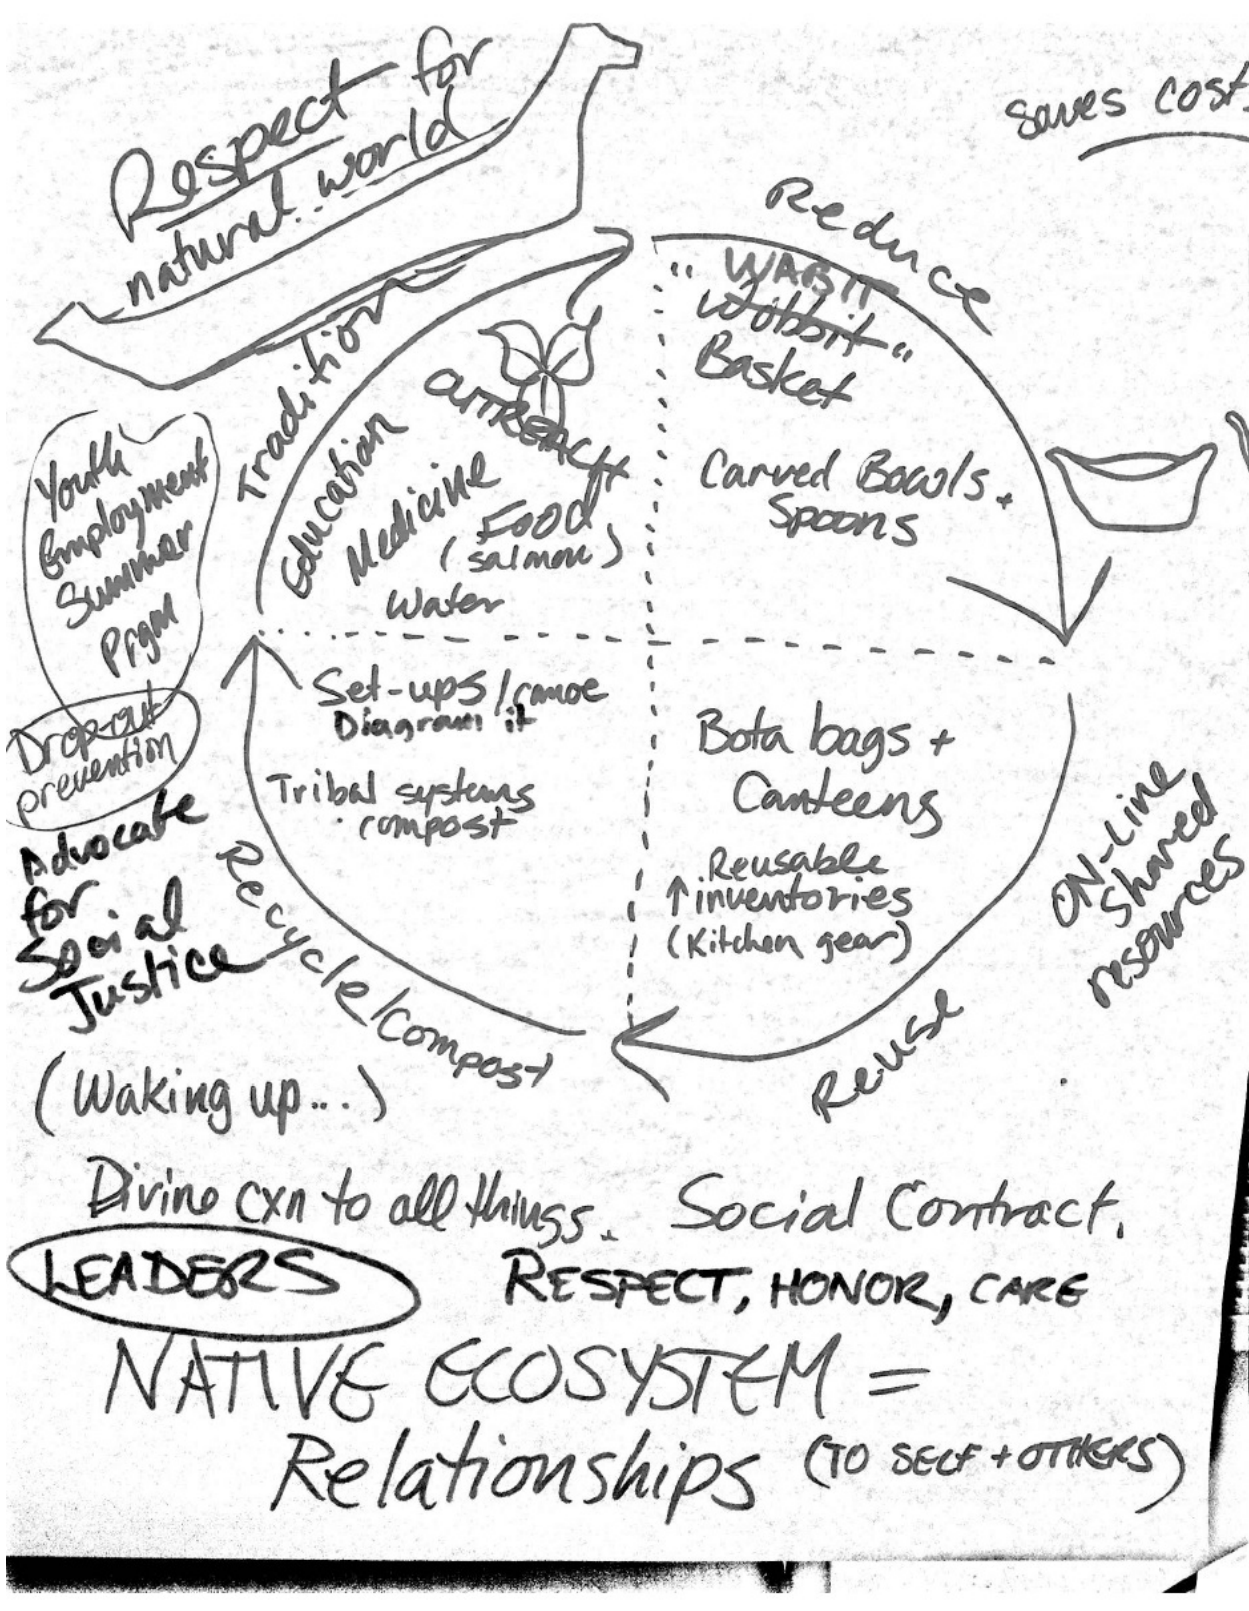 Respect for
natural world
saves cost
Reduce
"WABIT
Wobbit"
Basket
Carved Bowls +
Spoons
Tradition
Education
OUTREACH
Medicine
Food
(salmon)
Water
Youth
Employment
Summer
Prgm
Drop-out
prevention
Advocate
for
Social
Justice
Set-ups/canoe
Diagram it
Tribal systems
compost
Recycle/compost
Bota bags +
Canteens
Reusable
↑ inventories
(Kitchen gear)
Reuse
ON-Line
Shared
resources
(Waking up...)
Divine cxn to all things. Social Contract.
LEADERS RESPECT, HONOR, CARE
NATIVE ECOSYSTEM =
Relationships (TO SELF + OTHERS)